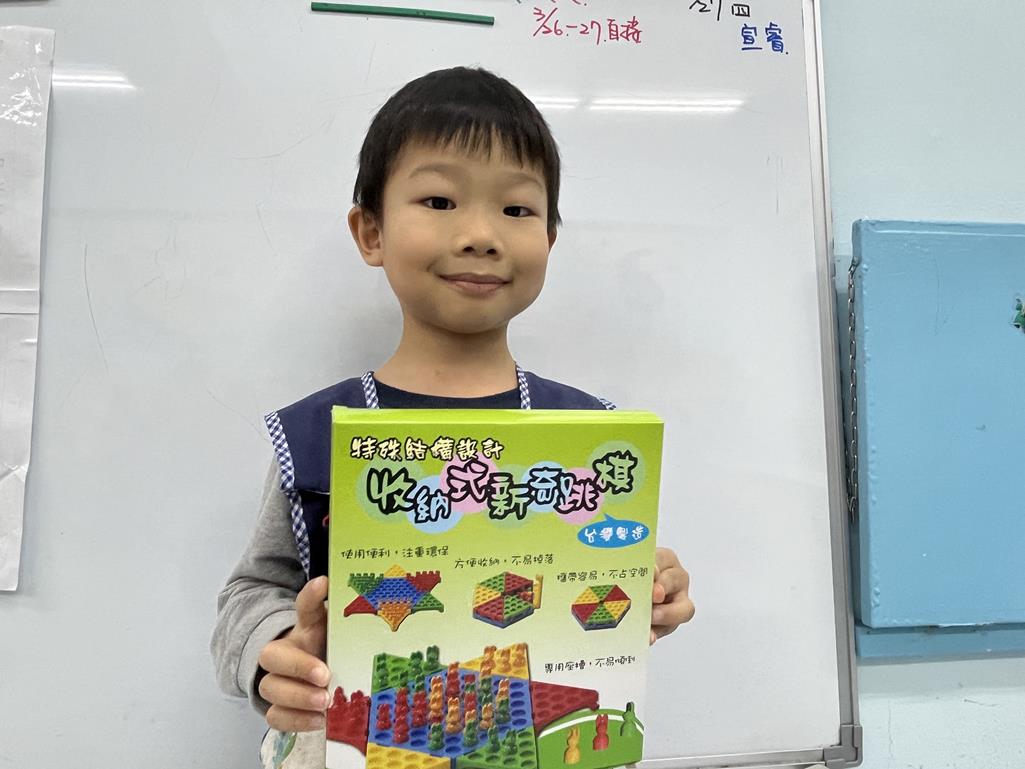 3/26.-27.直接
/27 四
宣睿
特殊結構設計
收納式新奇跳棋
台灣製造
使用便利，注重環保
方便收納，不易掉落
攜帶容易，不占空間
專用座槽，不易傾倒